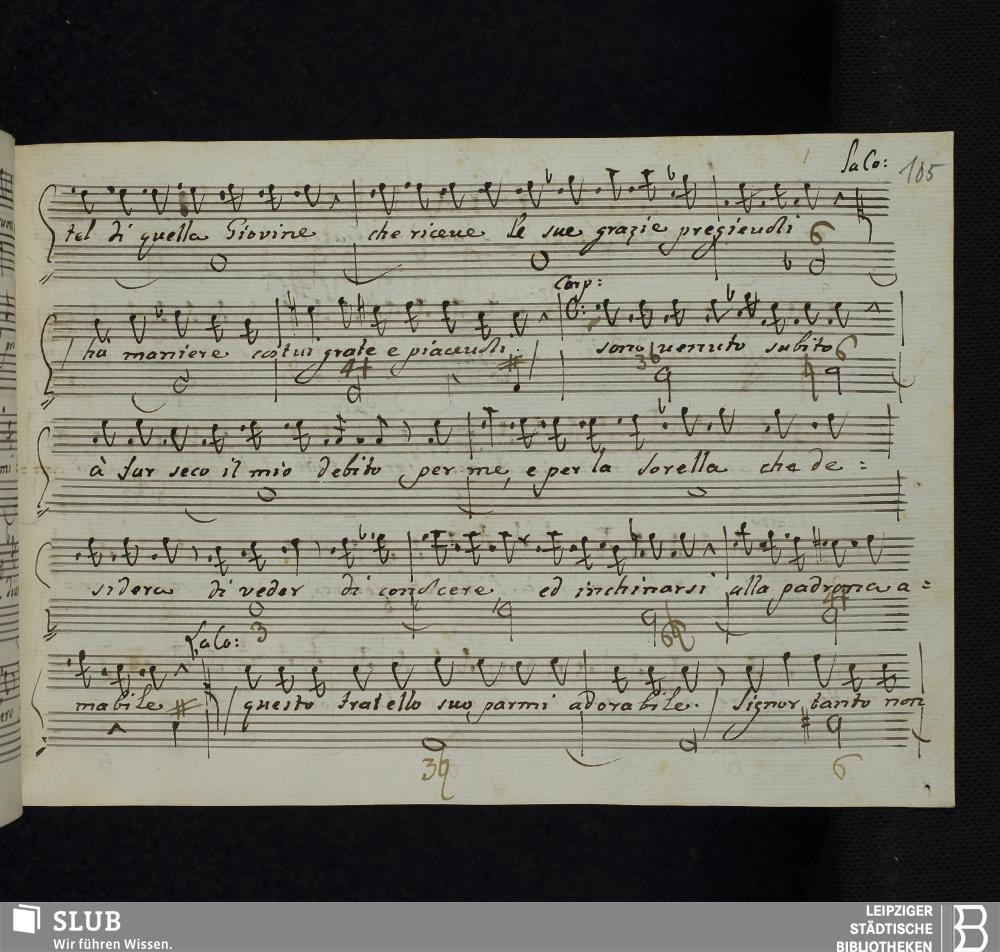 La Co: 105
tel di quella Giovine che riceve le sue grazie pregievoli
6
Corp:
ha maniere costui grate e piacevoli. sono venuto subito
4+ 36 6
à far seco il mio debito per me, e per la sorella che de=
sidera di veder di conoscere, ed inchinarsi alla padrona a=
3 6
La Co:
mabile questo fratello suo parmi adorabile. Signor tanto non
3 6
SLUB
Wir führen Wissen.
LEIPZIGER
STÄDTISCHE
BIBLIOTHEKEN